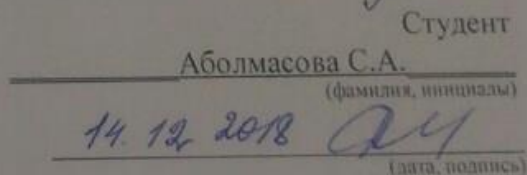 Студент
Аболмасова С.А.
(фамилия, инициалы)
14. 12. 2018
(дата, подпись)